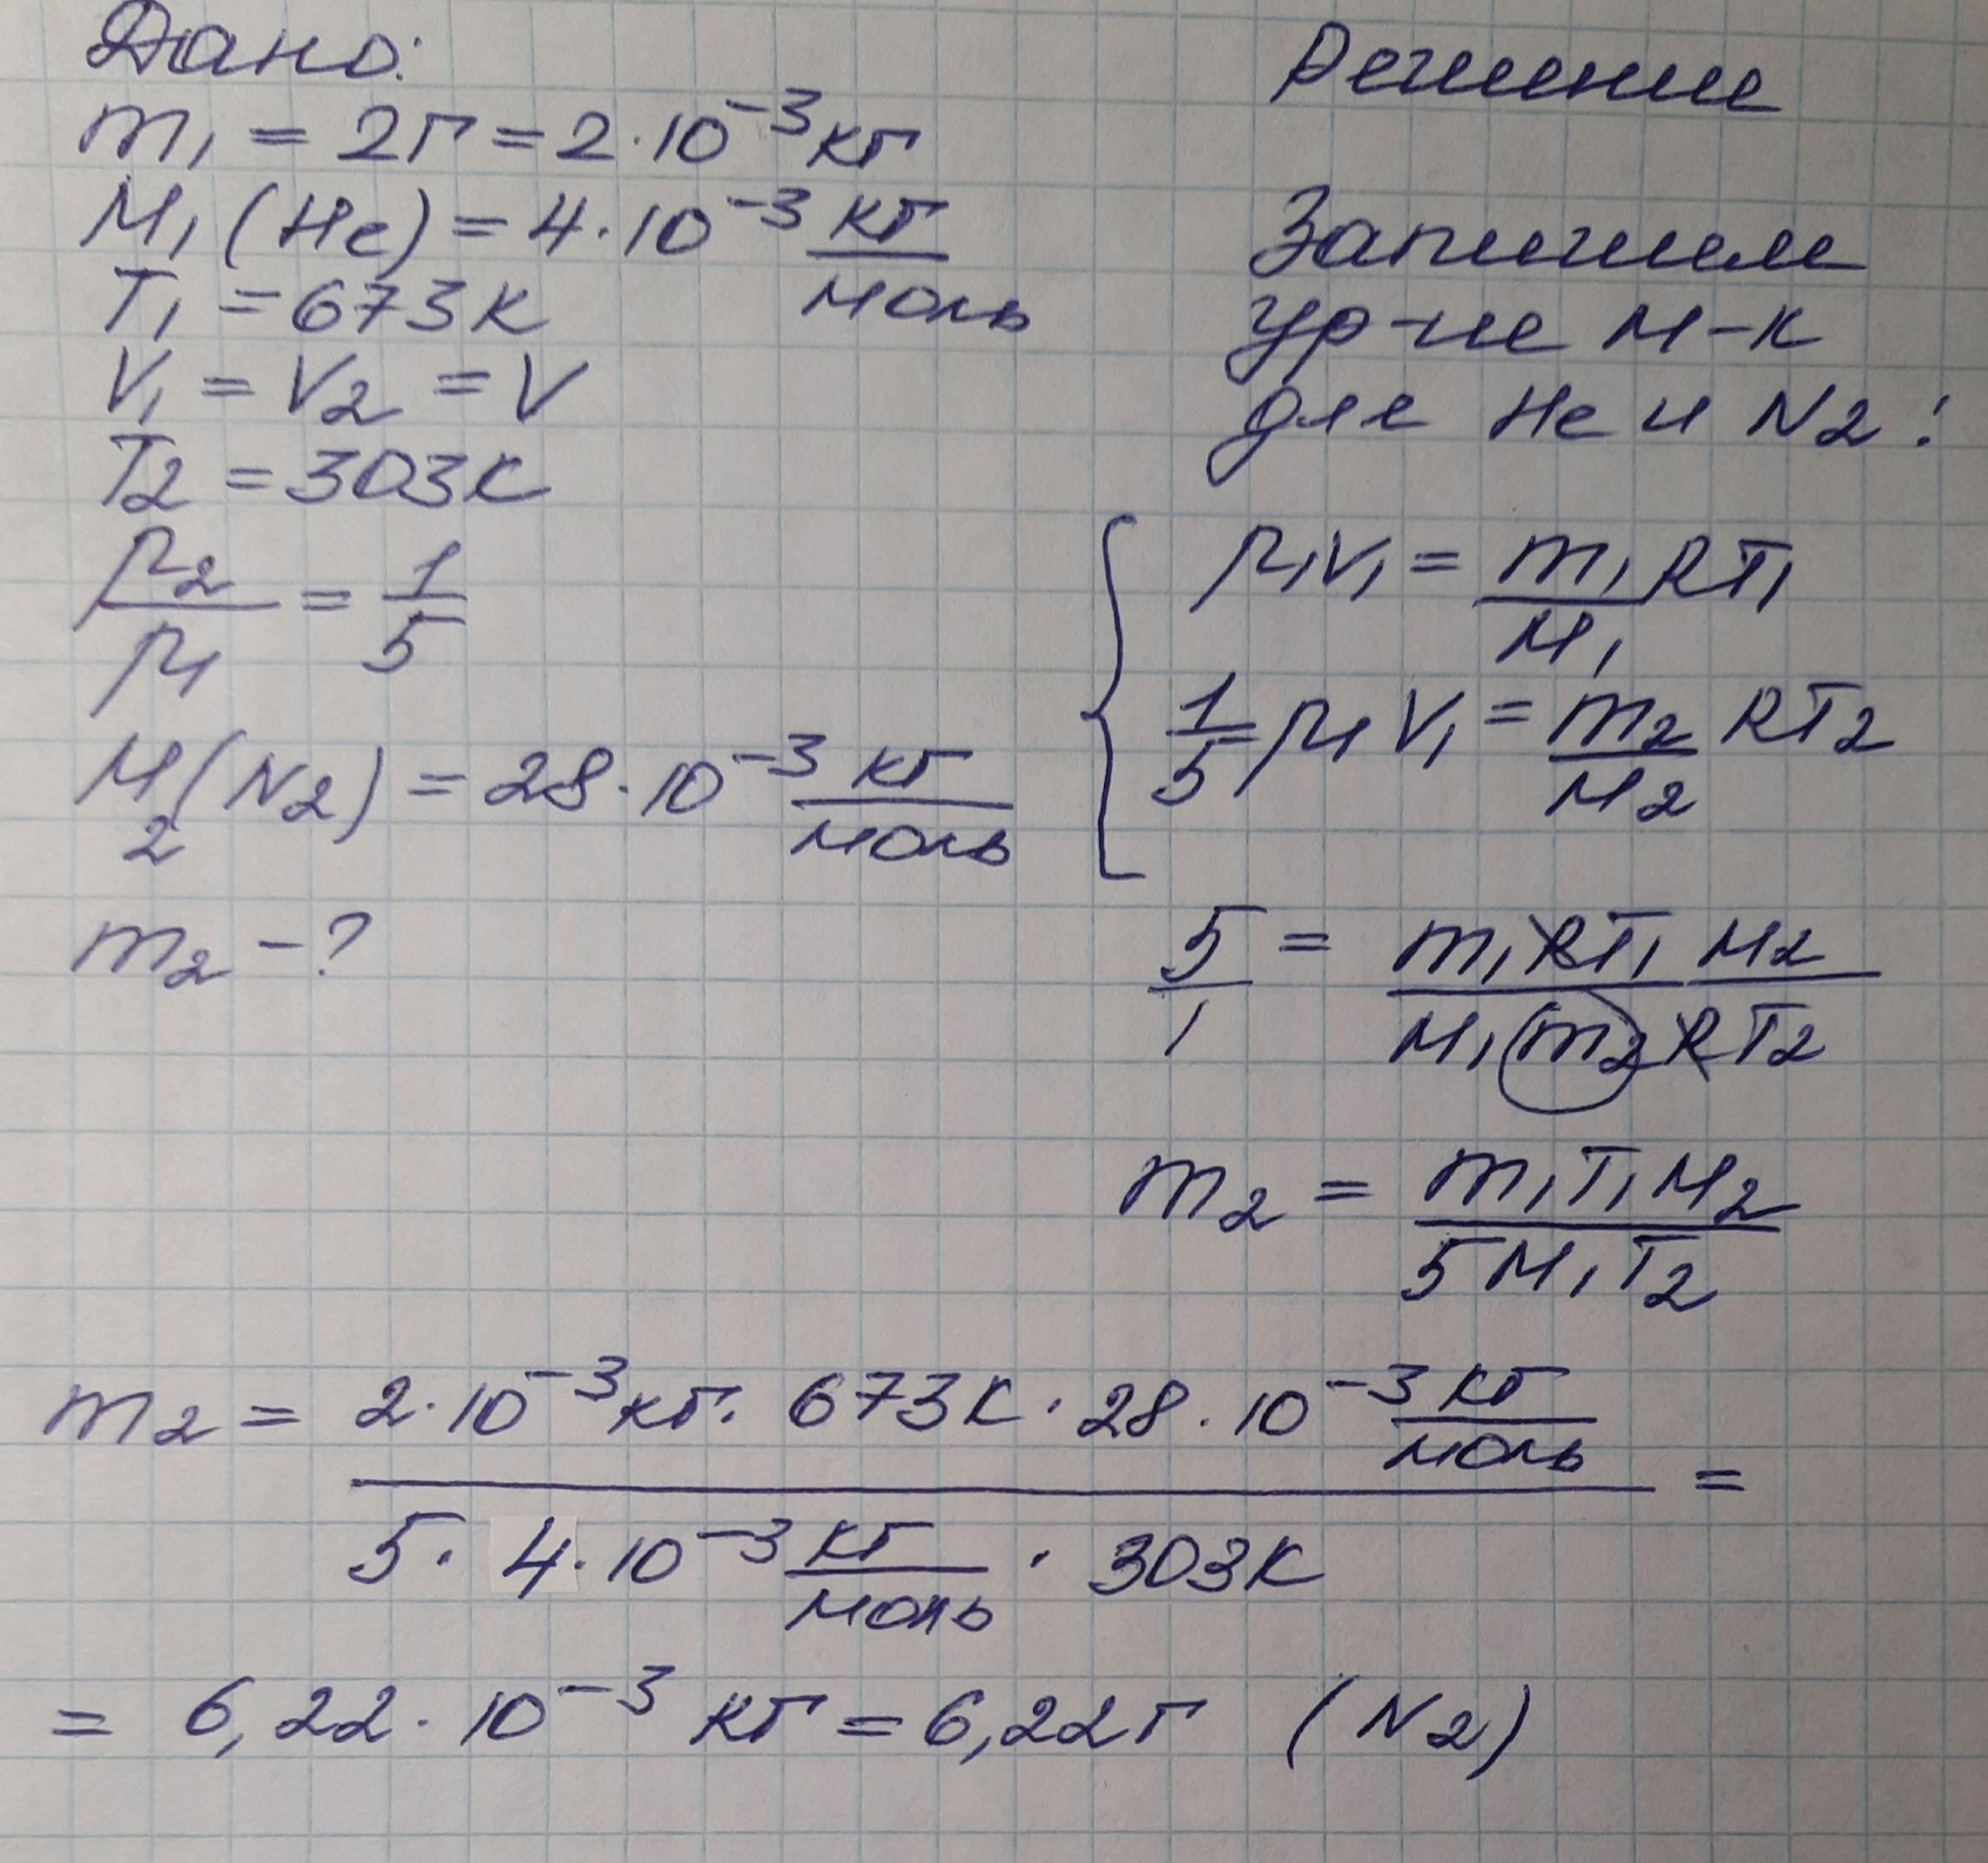 Дано:
m₁ = 2г = 2·10⁻³ кг
M₁ (He) = 4·10⁻³ кг/моль
T₁ = 673К
V₁ = V₂ = V
T₂ = 303К
p₂/p₁ = 1/5
M₂(N₂) = 28·10⁻³ кг/моль
m₂ - ?
Решение
Запишем
ур-ие М-К
для He и N₂:
p₁V₁ = m₁/M₁ RT₁
1/5 p₁ V₁ = m₂/M₂ RT₂
5/1 = m₁RT₁ M₂ / M₁ m₂ RT₂
m₂ = m₁T₁M₂ / 5M₁T₂
m₂ = 2·10⁻³ кг · 673К · 28·10⁻³ кг/моль / 5 · 4·10⁻³ кг/моль · 303К =
= 6,22·10⁻³ кг = 6,22г (N₂)